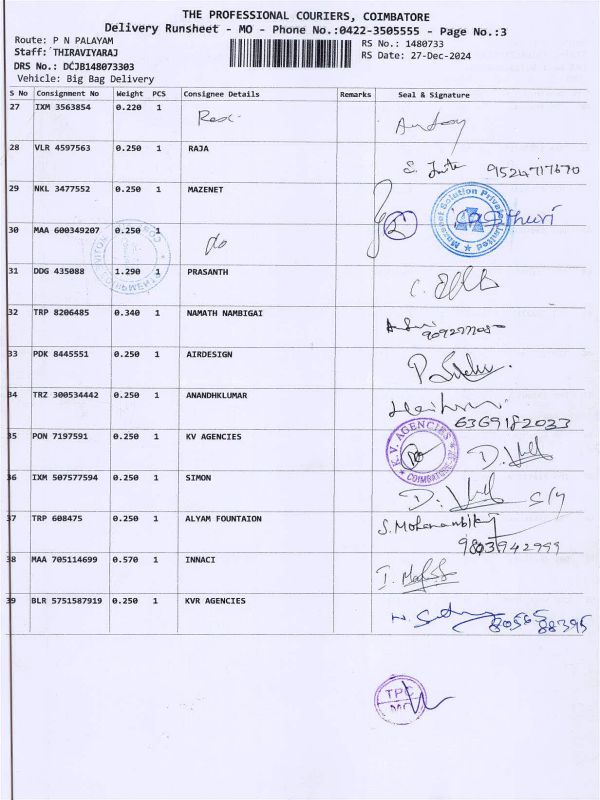 THE PROFESSIONAL COURIERS, COIMBATORE
Delivery Runsheet - MO - Phone No.:0422-3505555 - Page No.:3
Route: P N PALAYAM
RS No.: 1480733
Staff: THIRAVIYARAJ
RS Date: 27-Dec-2024
DRS No.: DCJB148073303
Vehicle: Big Bag Delivery
S No Consignment No Weight PCS Consignee Details Remarks Seal & Signature
27 IXM 3563854 0.220 1
28 VLR 4597563 0.250 1 RAJA
9524717670
29 NKL 3477552 0.250 1 MAZENET
Mazenet Solution Private Limited
30 MAA 600349207 0.250 1 do
31 DDG 435088 1.290 1 PRASANTH
32 TRP 8206485 0.340 1 NAMATH NAMBIGAI
33 PDK 8445551 0.250 1 AIRDESIGN
34 TRZ 300534442 0.250 1 ANANDHKLUMAR
6369182033
35 PON 7197591 0.250 1 KV AGENCIES
K.V. AGENCIES
36 IXM 507577594 0.250 1 SIMON
37 TRP 608475 0.250 1 ALYAM FOUNTAION
38 MAA 705114699 0.570 1 INNACI
39 BLR 5751587919 0.250 1 KVR AGENCIES
80565
88395
TPC
MO